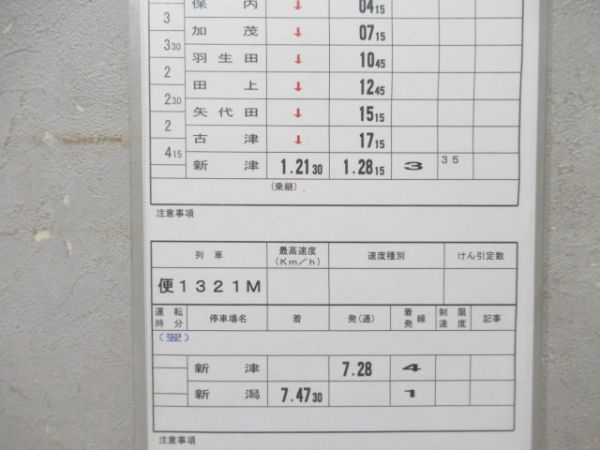 保内 ↓ 04 15
3
加茂 ↓ 07 15
3 30
羽生田 ↓ 10 45
2
田上 ↓ 12 45
2 30
矢代田 ↓ 15 15
2
古津 ↓ 17 15
4 15
新津 1.21 30 1.28 15 3 35
(乗継)
注意事項
列車 最高速度(Km/h) 速度種別 けん引定数
便1321M
運転時分 停車場名 着 発(通) 着発線 制限速度 記事
(翌)
新津 7.28 4
新潟 7.47 30 1
注意事項